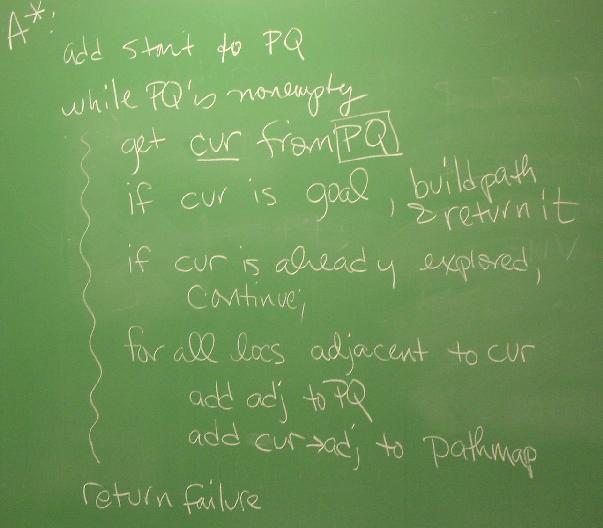 A*:
add start to PQ
while PQ is nonempty
get cur from PQ
if cur is goal, build path
& return it
if cur is already explored,
continue;
for all locs adjacent to cur
add adj to PQ
add cur→adj to pathmap
return failure